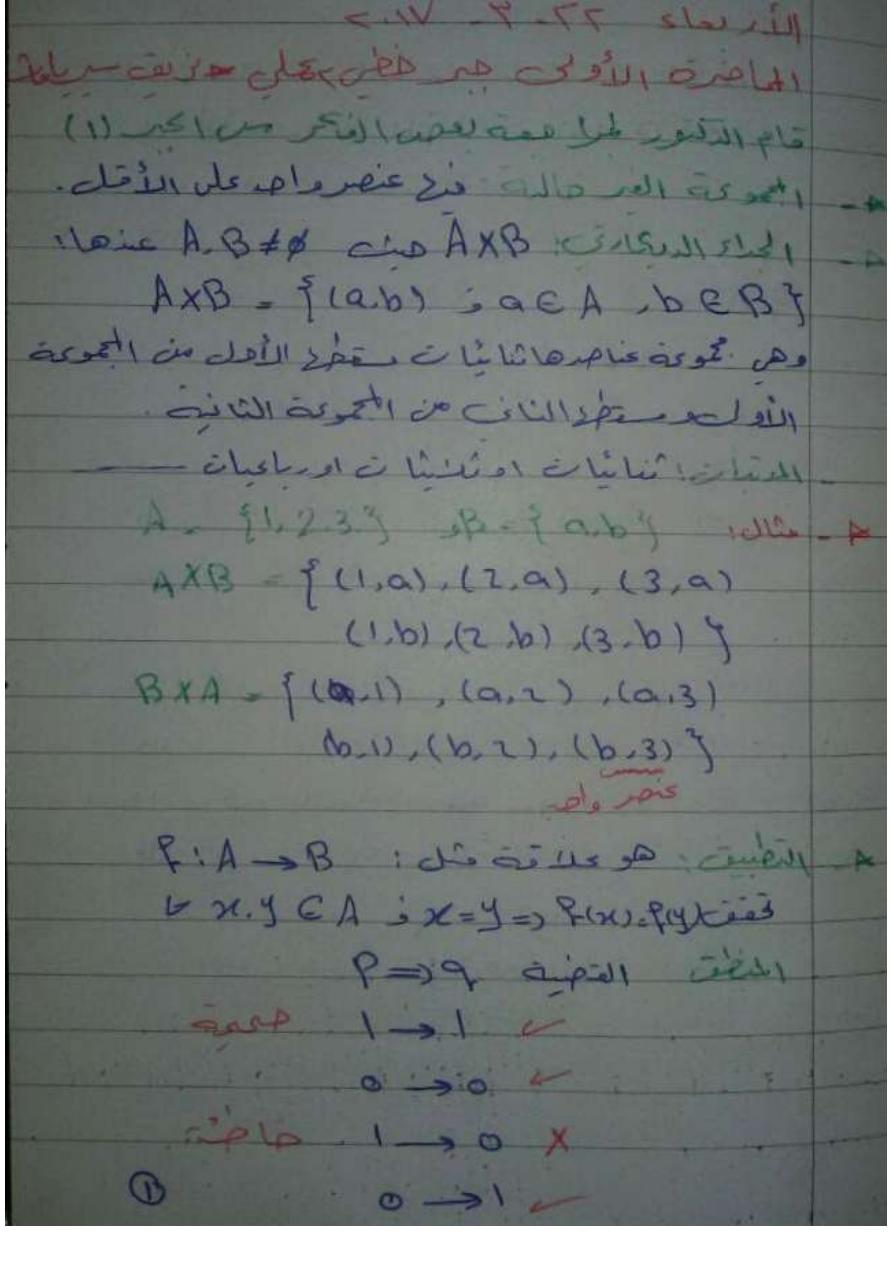 الأربعاء ٢٢-٣-٢٠١٧
المحاضرة الأولى جبر خطي عملي
قام الدكتور بمراجعة بعض الفكر من الجبر (١)
- المجموعة الغير خالية: فيها عنصر واحد على الأقل.
- الجداء الديكارتي: A×B حيث A,B≠∅ عندها:
A×B = {(a,b) ; a∈A , b∈B}
وهي مجموعة عناصرها ثنائيات مسقطها الأول من المجموعة
الأولى ومسقطها الثاني من المجموعة الثانية.
- المرتبات: ثنائيات او ثلاثيات او رباعيات
- مثال: A = {1,2,3} و B = {a,b}
A×B = {(1,a),(2,a),(3,a)
(1,b),(2,b),(3,b)}
B×A = {(a,1),(a,2),(a,3)
(b,1),(b,2),(b,3)}
عنصر واحد
التطبيق: هو علاقة مثل: f:A→B
تحقق ∀ x,y ∈ A ; x=y => f(x)=f(y)
المنطق القضية P=>q
1→1 ✓ صحيحة
0→0 ✓
1→0 X خاطئة
0→1 ✓
1